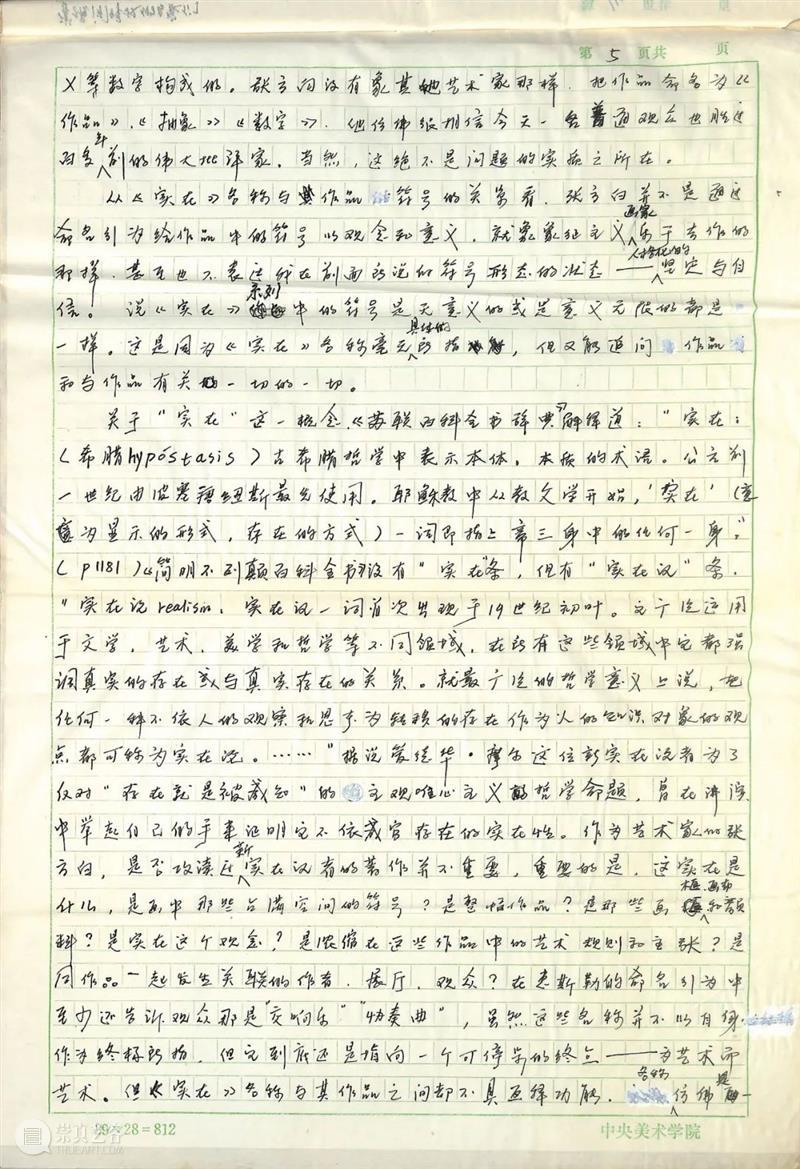 第 5 页共 页
义等数字构成的。张方白没有象其他艺术家那样，把作品命名为《
作品》、《抽象》《数字》。他仿佛很相信今天一名普通观众也胜过
百多年前的伟大批评家。当然，这绝不是问题的实质之所在。
从《实在》名称与其作品的符号的关系看，张方白并不是通过
命名行为给作品中的符号以观念和意义，就象象征主义画家乐于去作的
那样，甚至也不表达我在前面所说的符号形态的状态——人格化的坚定与自
信。说《实在》系列中的符号是无意义的或是意义无限的都是
一样。这是因为《实在》名称毫无具体的所指，但又能追问作品
和与作品有关的一切的一切。
关于“实在”这一概念，《苏联百科全书辞典》解释道：“实在：
（希腊hypóstasis）古希腊哲学中表示本体，本质的术语。公元前
一世纪由波塞唐纽斯最先使用。耶稣教中从教父学开始，‘实在’（意
为显示的形式，存在的方式）一词即指上帝三身中的任何一身。”
（P1181）《简明不列颠百科全书》没有“实在”条，但有“实在论”条，
“实在论realism，实在论一词首次出现于19世纪初叶。它广泛运用
于文学，艺术，美学和哲学等不同领域，在所有这些领域中它都强
调真实的存在或与真实存在的关系。就最广泛的哲学意义上说，把
任何一种不依人的观察和思承为转移的存在作为人的知识对象的观
点都可称为实在论。……”据说爱德华·摩尔这位新实在论者为了
反对“存在就是被感知”的主观唯心主义的哲学命题，曾在讲演
中举起自己的手来证明它不依感官存在的实在性。作为艺术家的张
方白，是否攻读过新实在论者的著作并不重要，重要的是，这实在是
什么，是画中那些占满空间的符号？是整幅作品？是那些画框、画布和颜
料？是实在这个观念？是浓缩在这些作品中的艺术规则和主张？是
同作品一起发生关联的作者、展厅、观众？在惠斯勒的命名行为中
至少还告诉观众那是“交响乐”“协奏曲”，虽然这些名称并不以自身
作为终极所指，但它到底还是指向一个可停步的终点——为艺术而
艺术。但《实在》名称与其作品之间却不具互释功能，名称仿佛是一
29×28=812
中央美术学院
崇真艺客